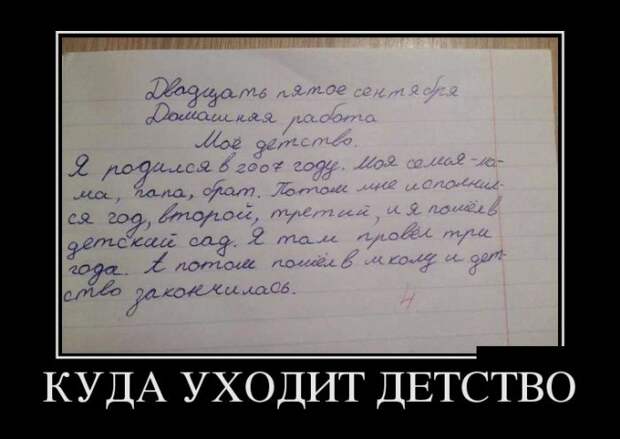 Двадцать пятое сентября
Домашняя работа
Моё детство.
Я родился в 2007 году. Моя семья - ма-
ма, папа, брат. Потом мне исполнил-
ся год, второй, третий, и я пошёл в
детский сад. Я там провёл три
года. А потом пошёл в школу и дет-
ство закончилась.
4
КУДА УХОДИТ ДЕТСТВО